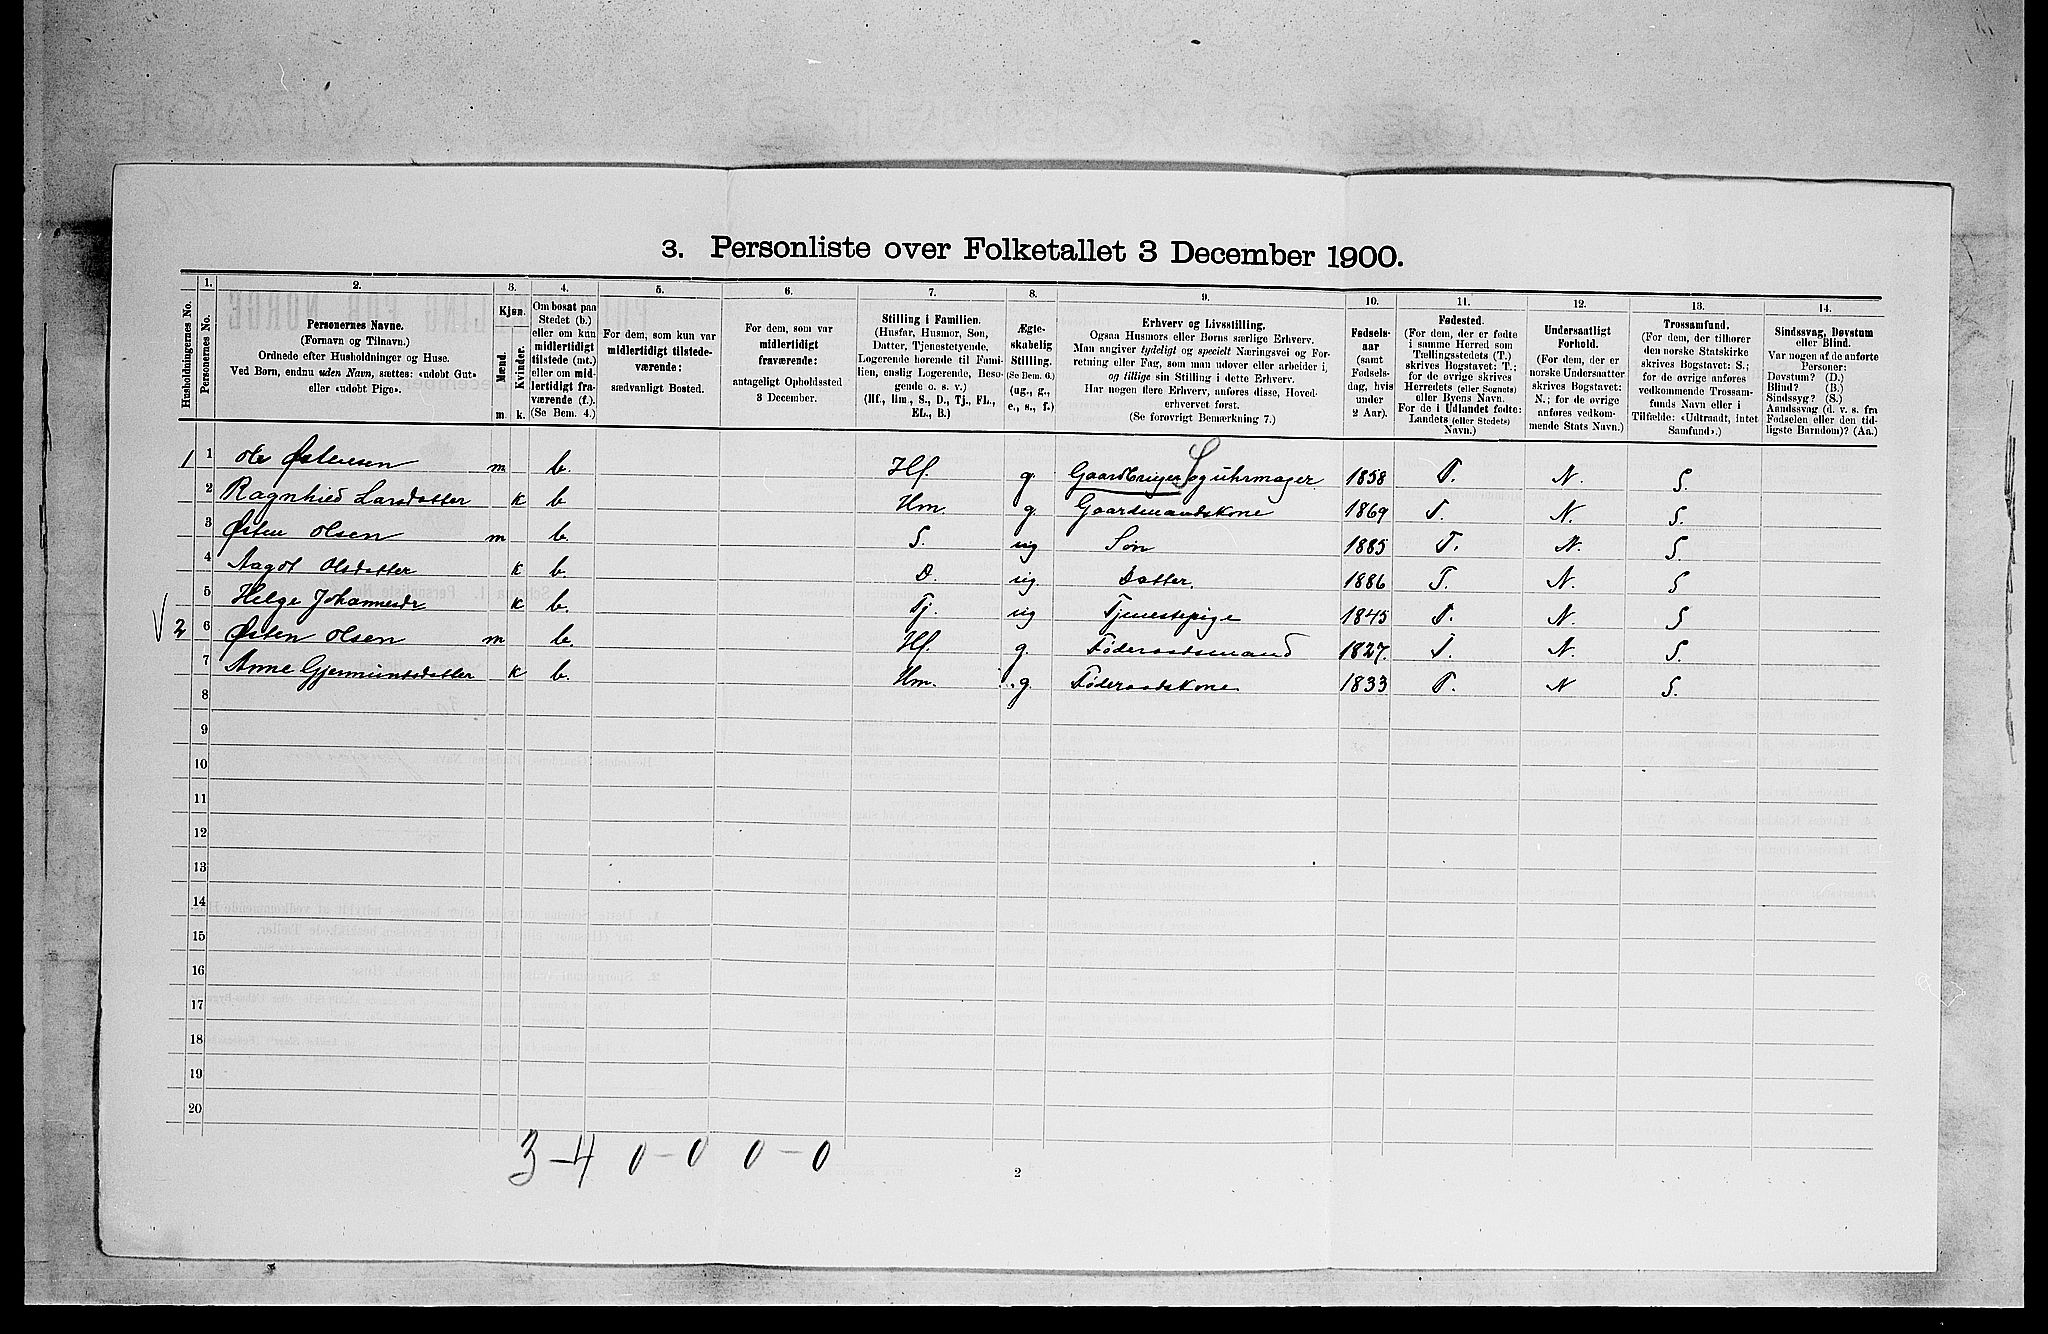 3. Personliste over Folketallet 3 December 1900.
Husholdningernes No.
1.
Personernes No.
2.
Personernes Navne.
(Fornavn og Tilnavn.)
Ordnede efter Husholdninger og Huse.
Ved Børn, endnu uden Navn, sættes: «udøbt Gut»
eller «udøbt Pige».
3.
Kjøn.
Mænd.
Kvinder.
m. k.
4.
Om bosat paa
Stedet (b.)
eller om kun
midlertidigt
tilstede (mt.)
eller om mid-
lertidigt fra-
værende (f.).
(Se Bem. 4.)
5.
For dem, som kun var
midlertidigt tilstede-
værende:
sædvanligt Bosted.
6.
For dem, som var
midlertidigt
fraværende:
antageligt Opholdssted
3 December.
7.
Stilling i Familien.
(Husfar, Husmor, Søn,
Datter, Tjenestetyende,
Logerende hørende til Fami-
lien, enslig Logerende, Besø-
gende o. s. v.)
(Hf., Hm., S., D., Tj., FL.,
EL., B.)
8.
Ægte-
skabelig
Stilling.
(Se Bem. 6.)
(ug., g.,
e., s., f.)
9.
Erhverv og Livsstilling.
Ogsaa Husmors eller Børns særlige Erhverv.
Man angiver tydeligt og specielt Næringsvei og For-
retning eller Fag, som man udøver eller arbeider i,
og tillige sin Stilling i dette Erhverv.
Har nogen flere Erhverv, anføres disse, Hoved-
erhvervet først.
(Se forøvrigt Bemærkning 7.)
10.
Fødsels-
aar
(samt
Fødsels-
dag, hvis
under
2 Aar).
11.
Fødested.
(For dem, der er fødte
i samme Herred som
Tællingsstedets (T.)
skrives Bogstavet: T.;
for de øvrige skrives
Herredets (eller Sognets)
eller Byens Navn.
For de i Udlandet fødte:
Landets (eller Stedets)
Navn.)
12.
Undersaatligt
Forhold.
(For dem, der er
norske Undersaatter
skrives Bogstavet:
N.; for de øvrige
anføres vedkom-
mende Stats Navn.)
13.
Trossamfund.
(For dem, der tilhører
den norske Statskirke
skrives Bogstavet: S.;
for de øvrige anføres
vedkommende Trossam-
funds Navn eller i
Tilfælde: «Udtraadt, intet
Samfund».)
14.
Sindssvag, Døvstum
eller Blind.
Var nogen af de anførte
Personer:
Døvstum? (D.)
Blind? (B.)
Sindssyg? (S.)
Aandssvag (d. v. s. fra
Fødselen eller den tid-
ligste Barndom)? (Aa.)
1 1 Ole Østensen m b. Hf. g. Gaardbruger S og uhrmager 1858 T. N. S.
2 Ragnhild Larsdatter k b Hm g. Gaardmandskone 1869 T. N. S.
3 Østen Olsen m b. S. ug Søn 1885 T. N. S.
4 Aagot Olsdatter k b. D. ug. Datter. 1886 T. N. S
5 Helge Johannesdr k b. Tj. ug Tjenestepige 1845 T. N. S
V 2 6 Østen Olsen m b. Hf. g. Føderaadsmand 1827. T. N. S.
7 Anne Gjermundsdatter k b. Hm. g. Føderaadskone 1833 T. N S.
8
9
10
11
12
13
14
15
16
17
18
19
20
3-4 0-0 0-0
2